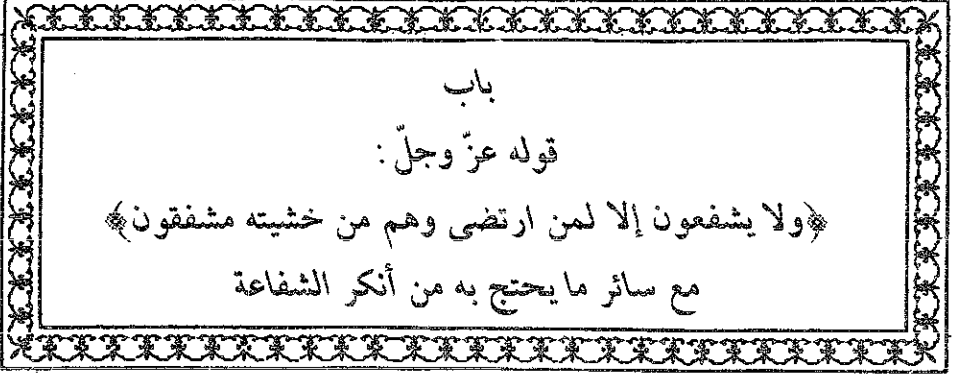 باب
قوله عزّ وجلّ:
﴿ولا يشفعون إلا لمن ارتضى وهم من خشيته مشفقون﴾
مع سائر ما يحتج به من أنكر الشفاعة